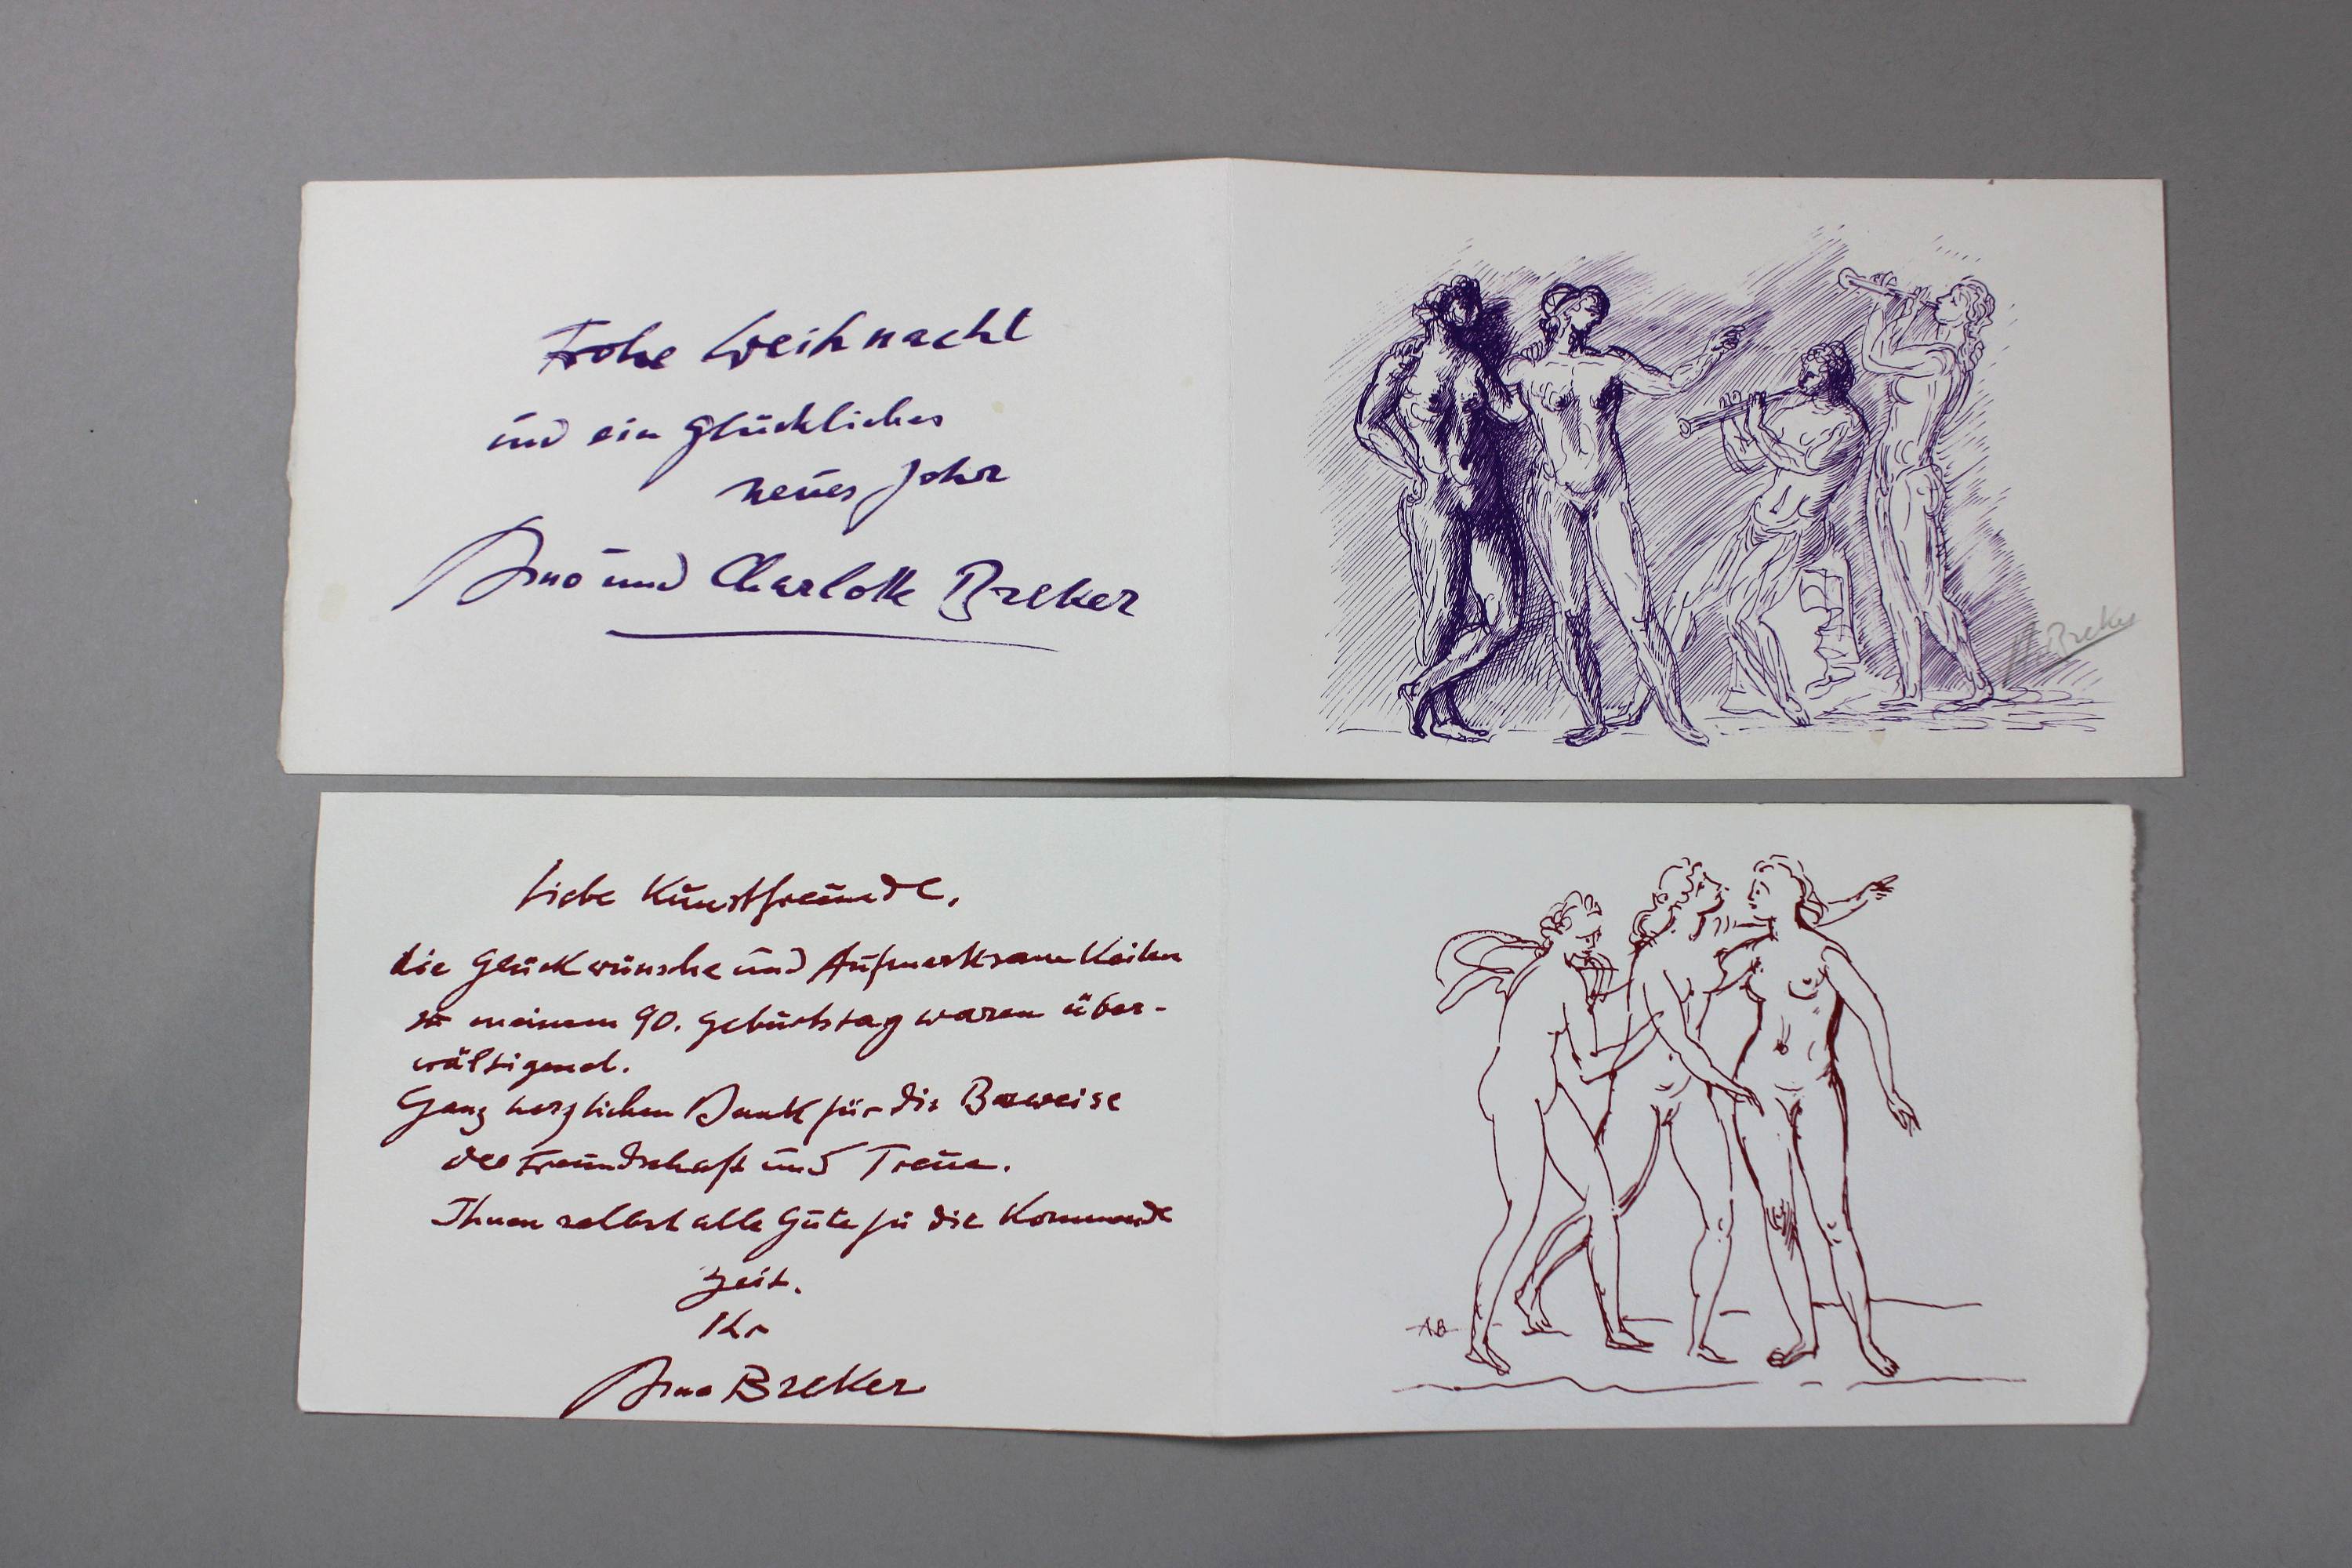 Frohe Weihnacht
und ein glückliches
neues Jahr
Arno und Charlotte Breker
A. Breker
Liebe Kunstfreunde,
die Glückwünsche und Aufmerksamkeiten
zu meinem 90. Geburtstag waren über-
wältigend.
Ganz herzlichen Dank für die Beweise
der Freundschaft und Treue.
Ihnen selbst alle Gute für die Kommende
Zeit.
Ihr
Arno Breker
AB